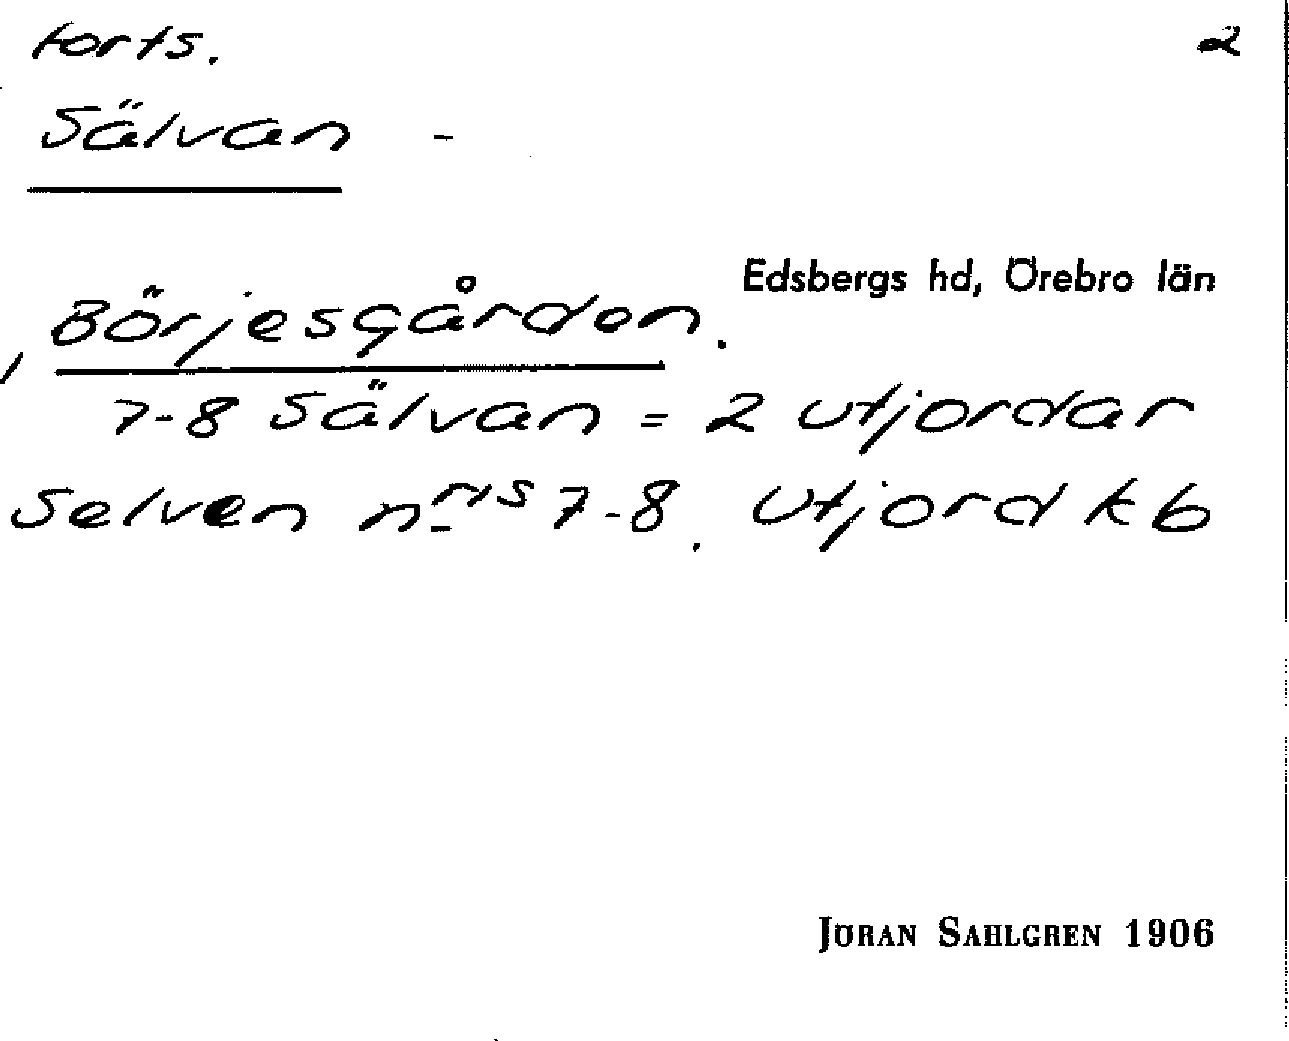 forts. 2
Sälvan -
Edsbergs hd, Örebro län
, Börjesgården.
7-8 Sälvan = 2 utjordar
Selven nris 7-8. Utjord kb
JÖRAN SAHLGREN 1906